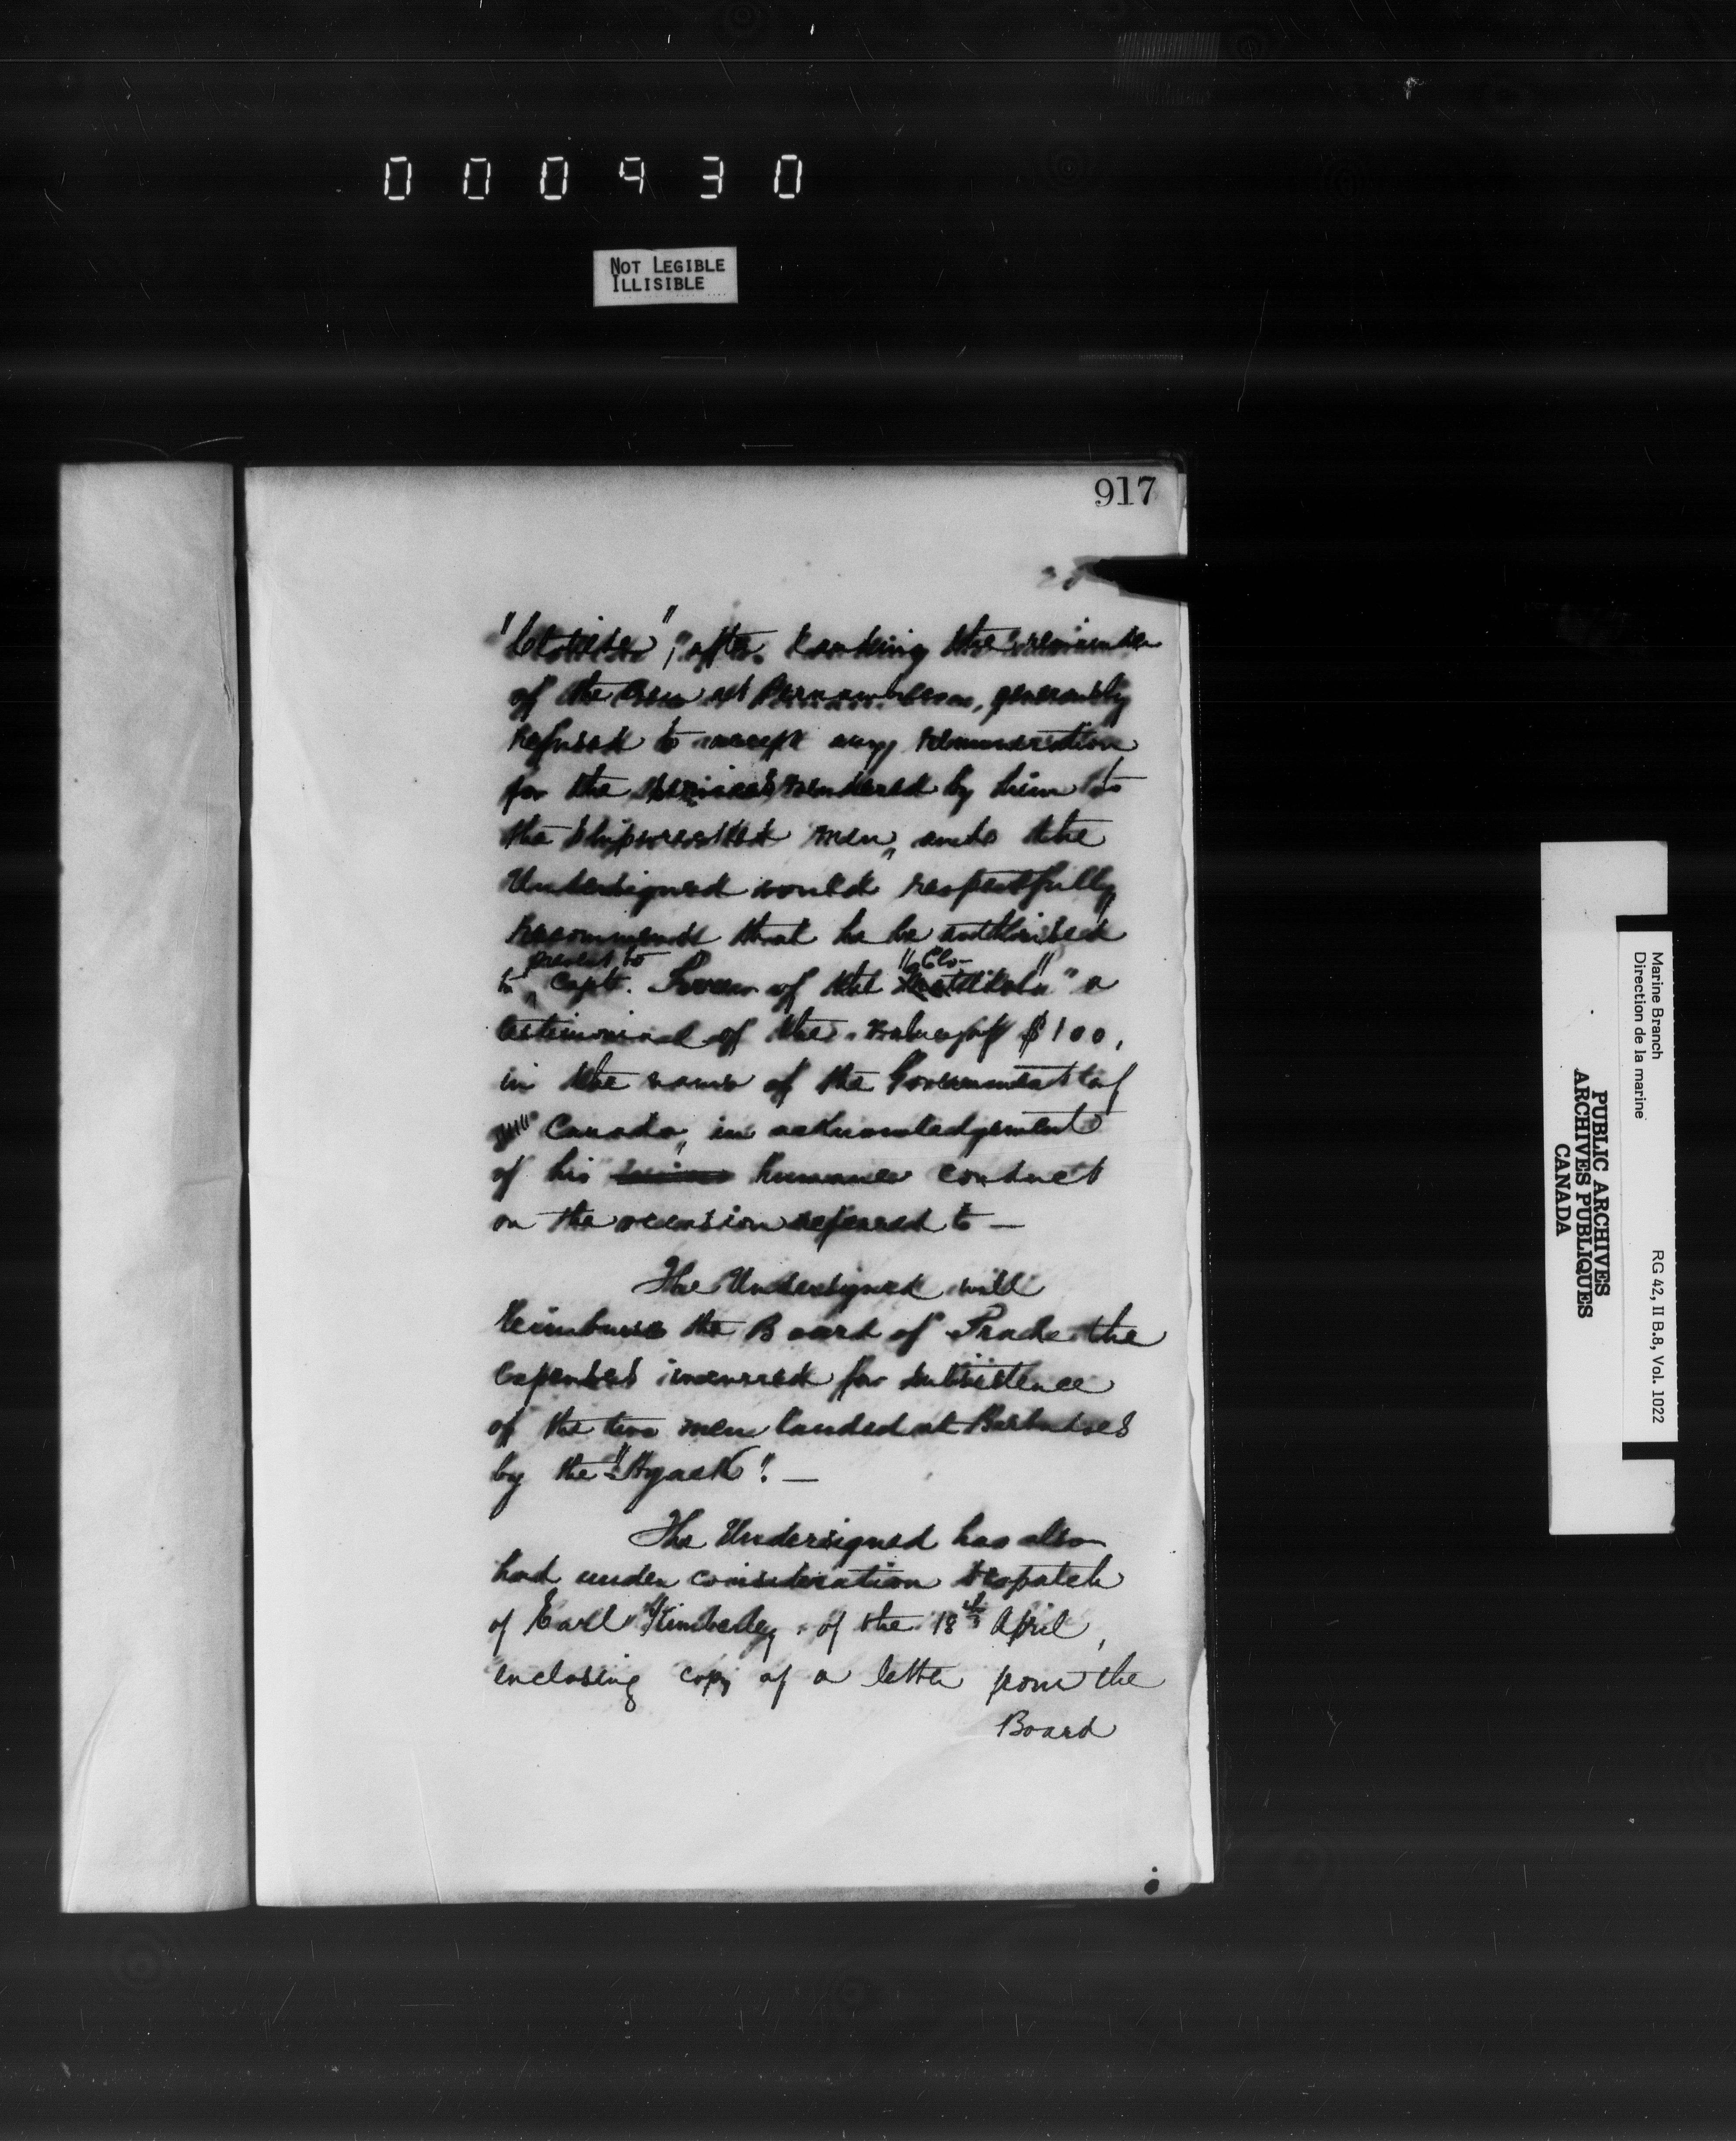 000930
NOT LEGIBLE
ILLISIBLE
917
"Clotilda", after landing the remainder
of the Crew at Pernambuco, generously
refused to accept any remuneration
for the services rendered by him to
the shipwrecked men, and the
Undersigned would respectfully
recommend that he be authorised
present to "Clo-
to Capt. of the "a
testimonial of the value of $100,
in the name of the Government of
Canada, in acknowledgement
of his humane conduct
on the occasion referred to —
The Undersigned will
reimburse the Board of Trade the
expenses incurred for subsistence
of the two men landed at Barbadoes
by the "Hyack". —
The Undersigned has also
had under consideration Despatch
of Earl Kimberley of the 18th April,
enclosing copy of a letter from the
Board
Marine Branch
Direction de la marine
RG 42, II B.8, Vol. 1022
PUBLIC ARCHIVES
ARCHIVES PUBLIQUES
CANADA